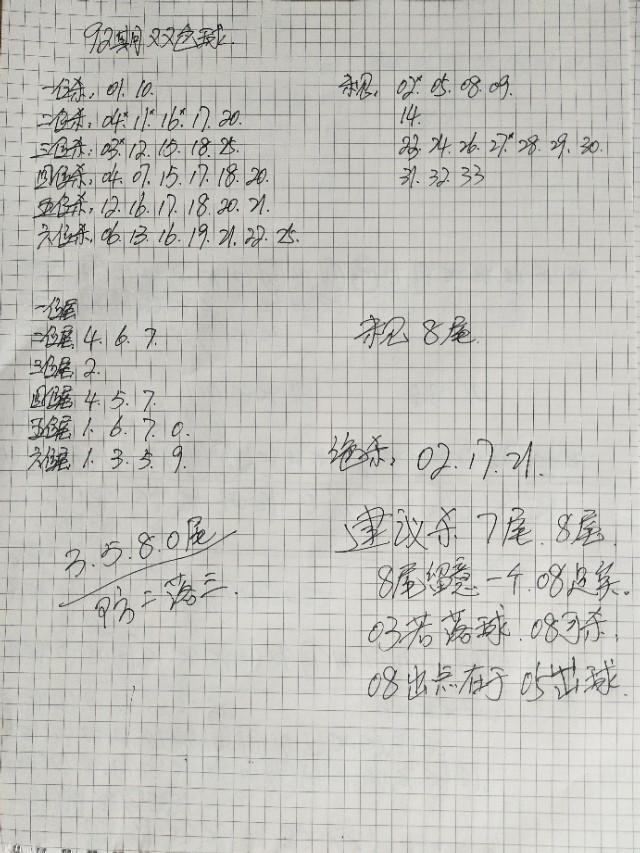 92期双色球.
一位杀: 01. 10.
二位杀: 04* 11* 16* 17. 20.
三位杀: 03* 12. 15. 18. 25.
四位杀: 04. 07. 15. 17. 18. 20.
五位杀: 12. 16. 17. 18. 20. 21.
六位杀: 06. 13. 16. 19. 21. 22. 25.
未见: 02* 05. 08. 09.
14.
23. 24. 26. 27* 28. 29. 30.
31. 32. 33
一位尾
二位尾 4. 6. 7.
三位尾 2.
四位尾 4. 5. 7.
五位尾 1. 6. 7. 0.
六位尾 1. 3. 5. 9.
未见 8尾.
绝杀: 02. 17. 21.
3. 5. 8. 0尾
二落三.
建议杀 7尾. 8尾.
8尾留意一个. 08是实.
03若落球. 08可杀.
08出点在于 05出球.